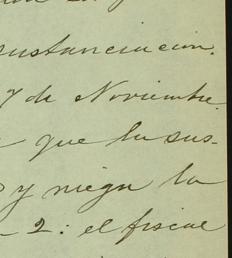 sustanciacion.
7 de Noviembre
que la sus-
y niega la
2: el fiscal